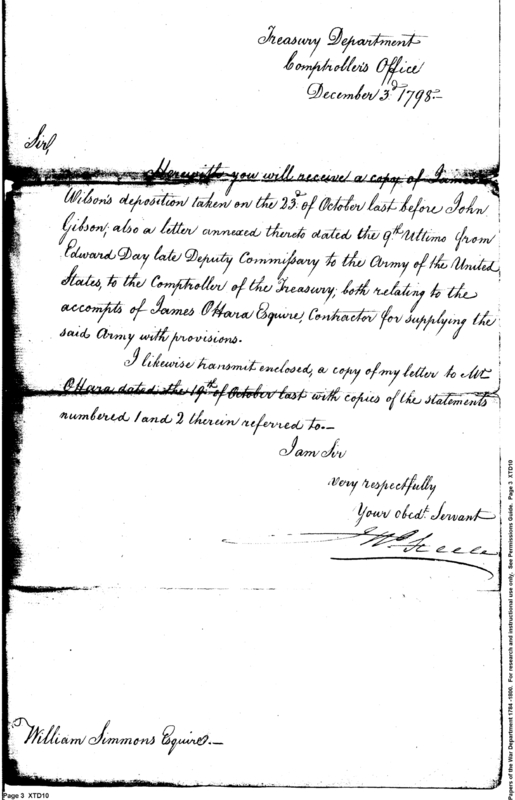 Treasury Department
Comptroller's Office
December 3.d 1798.—
Sir,
Herewith you will receive a copy of James
Wilson's deposition taken on the 23.d of October last before John
Gibson; also a letter annexed thereto dated the 9th Ultimo from
Edward Day late Deputy Commissary to the Army of the United
States, to the Comptroller of the Treasury; both relating to the
accompts of James OHara Esquire, Contractor for supplying the
said Army with provisions.
I likewise transmit enclosed, a copy of my letter to Mr.
OHara dated the 19th of October last with copies of the statements
numbered 1 and 2 therein referred to.—
I am Sir
very respectfully
Your obed.t Servant
Jno Steele
William Simmons Equire.—
Page 3 XTD10
Papers of the War Department 1784-1800. For research and instructional use only. See Permissions Guide. Page 3 XTD10